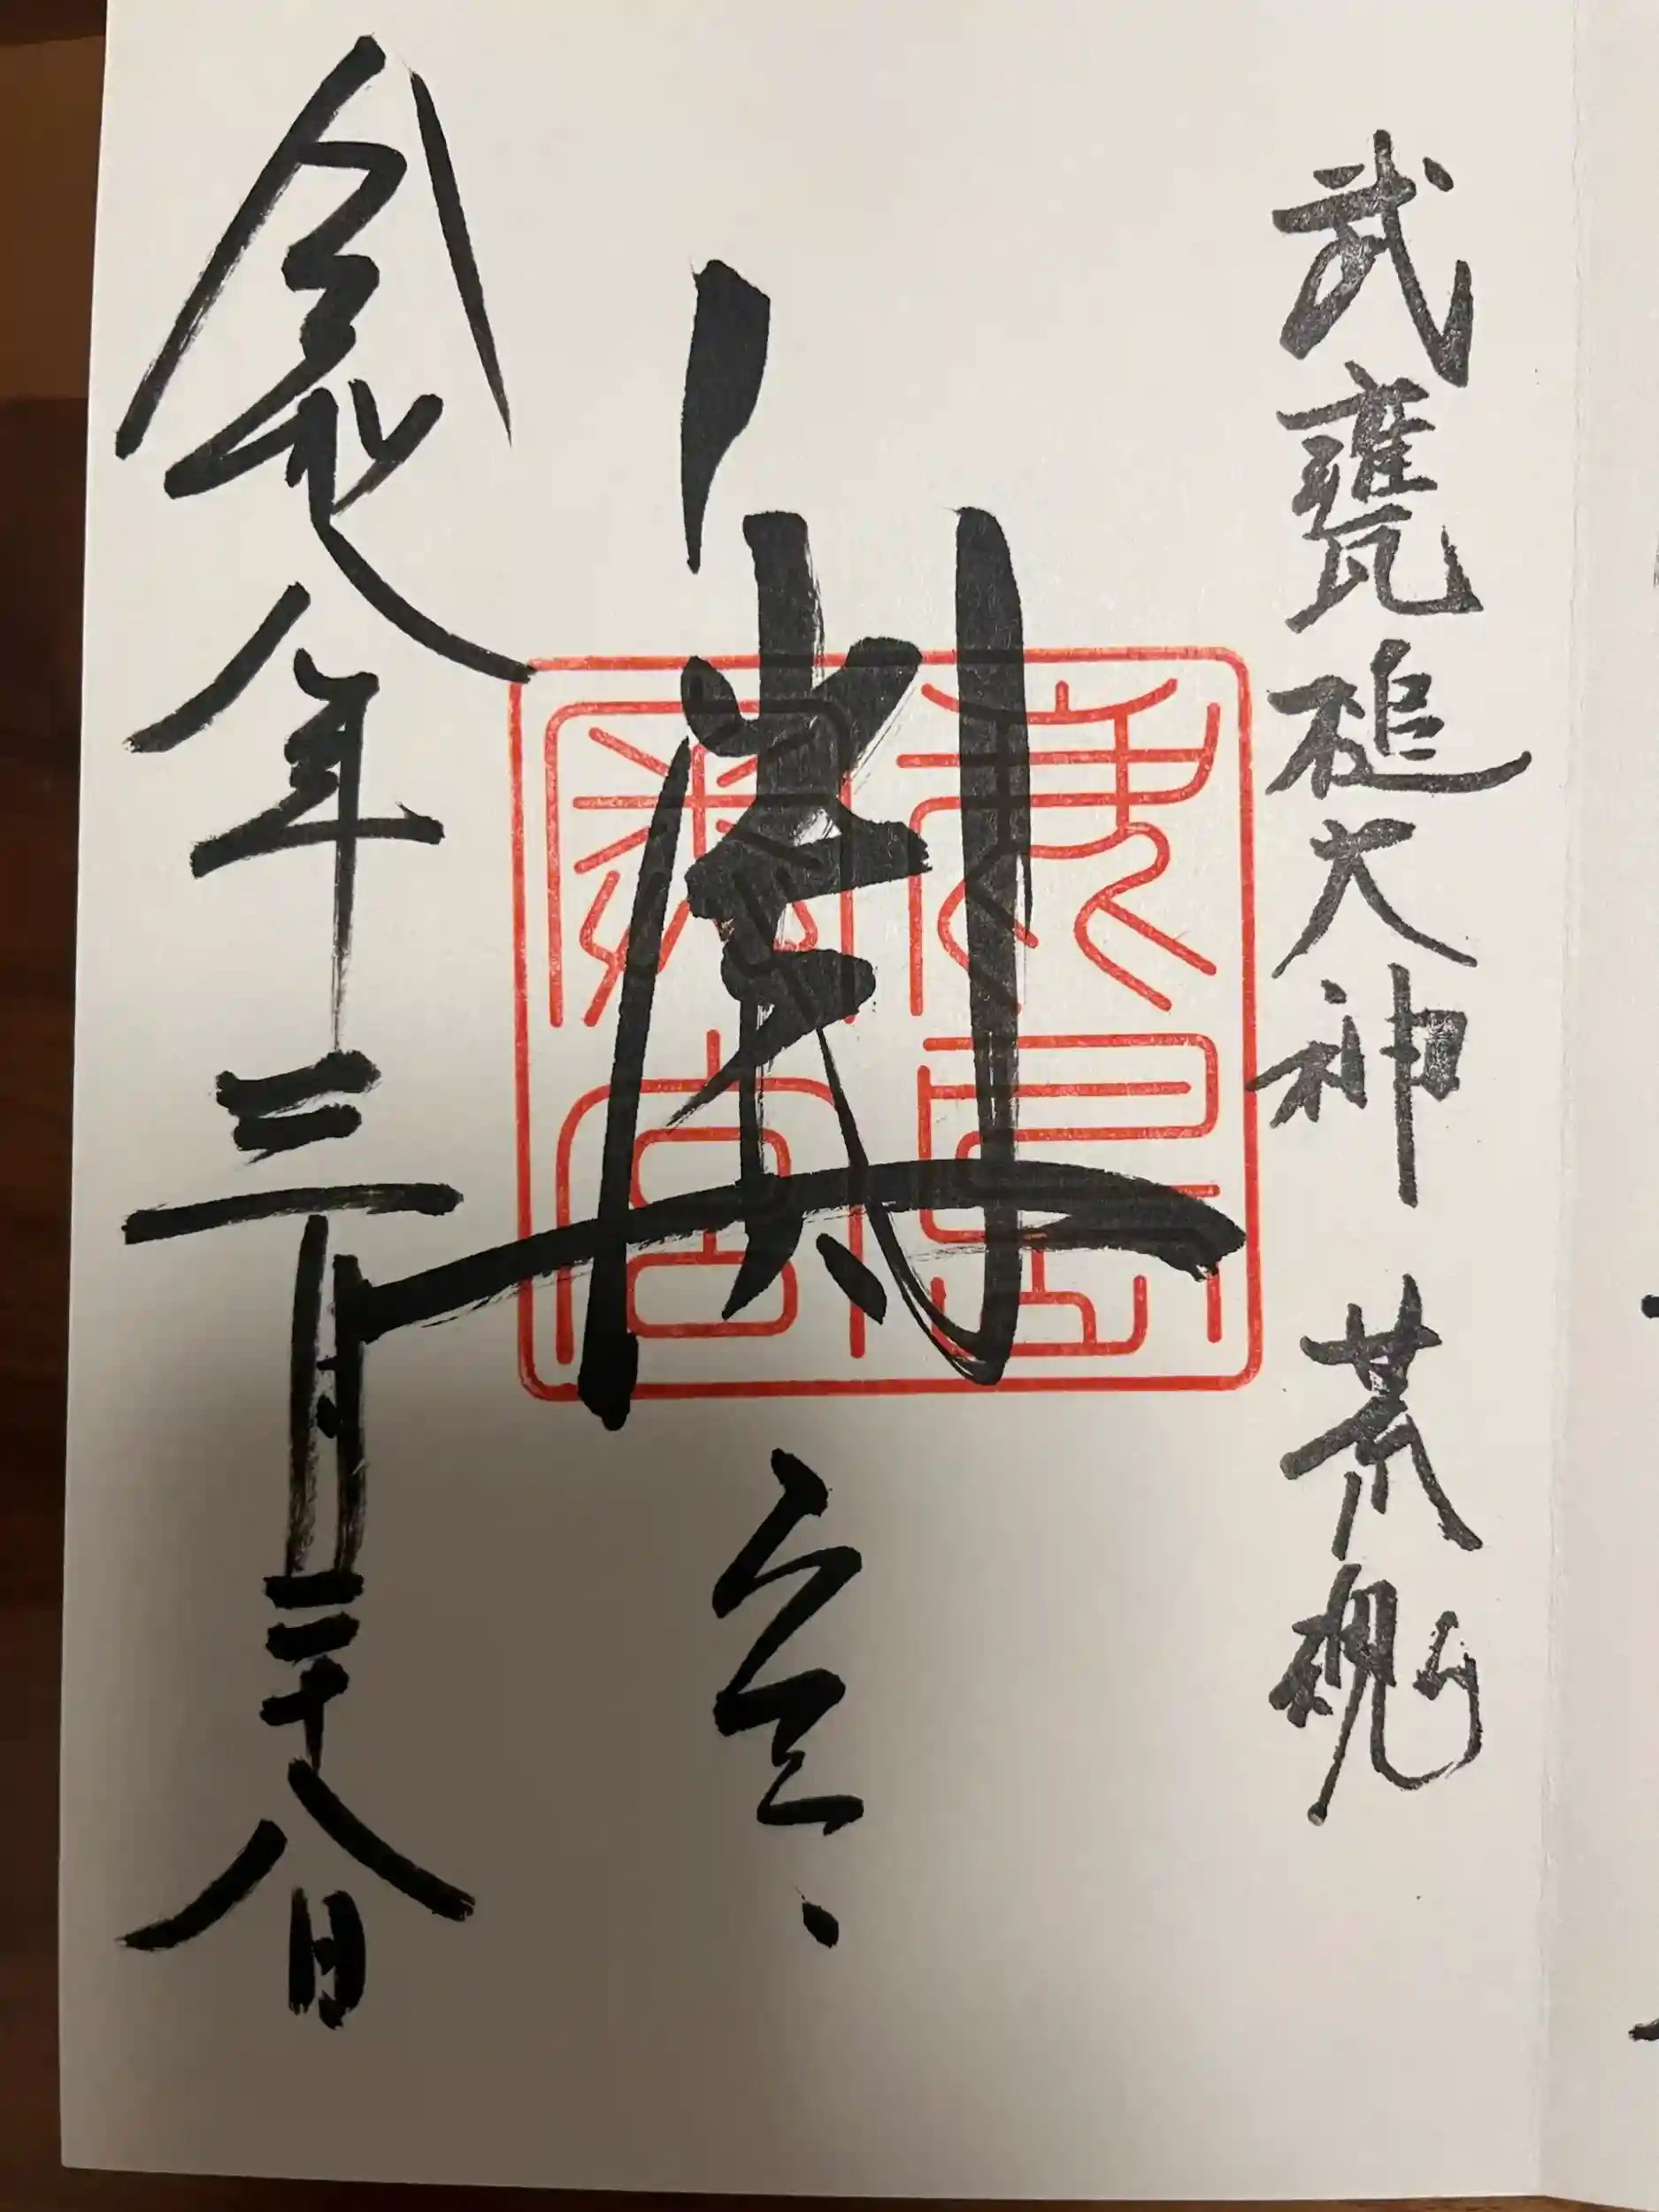 武甕槌大神 荒魂
奥宮
鹿島
奥宮
令和八年三月二十八日